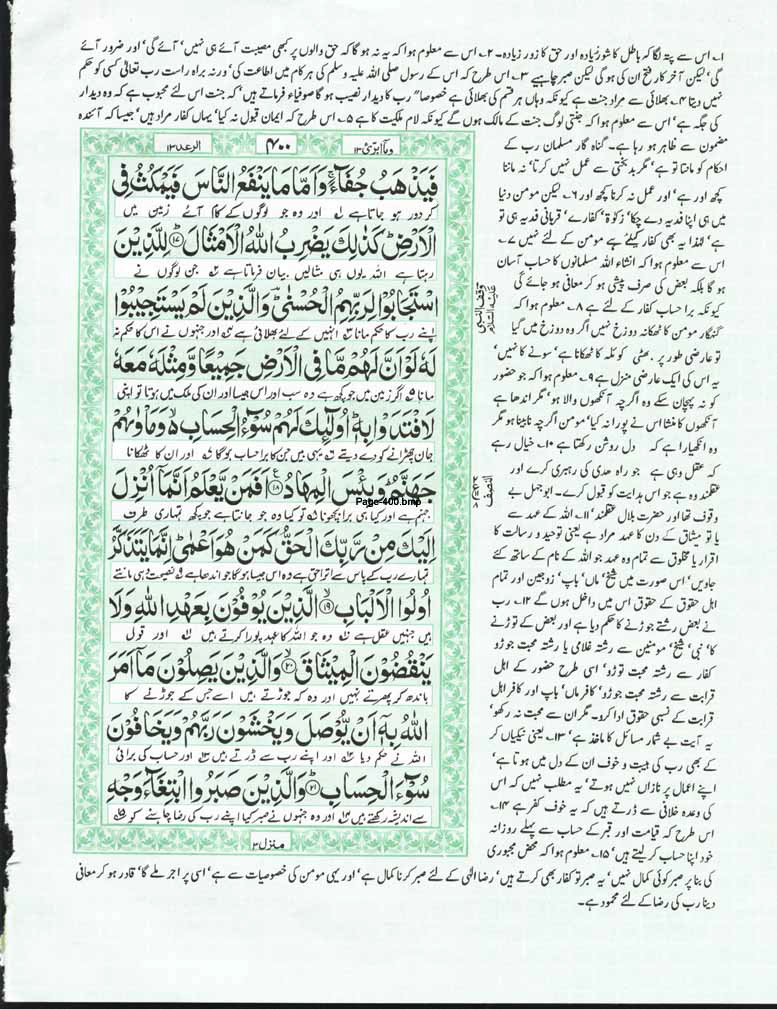 ۱۔ اس سے پتہ لگا کہ باطل کا شور زیادہ اور حق کا زور زیادہ۔ ۲۔ اس سے معلوم ہوا کہ یہ نہ ہو گا کہ حق والوں پر کبھی مصیبت آئے ہی نہیں' آئے گی' اور ضرور آئے
گی' لیکن آخر کار فتح ان کی ہو گی لیکن صبر چاہیے ۳۔ اس طرح کہ اس کے رسول صلی اللہ علیہ وسلم کی ہر کام میں اطاعت کی' ورنہ براہ راست رب تعالیٰ کسی کو حکم
نہیں دیتا ۴۔ بھلائی سے مراد جنت ہے کیونکہ وہاں ہر قسم کی بھلائی ہے خصوصا" رب کا دیدار نصیب ہو گا صوفیاء فرماتے ہیں' کہ جنت اس لئے محبوب ہے کہ وہ دیدار
کی جگہ ہے' اس سے معلوم ہوا کہ جنتی لوگ جنت کے مالک ہوں گے کیونکہ لام ملکیت کا ہے ۵۔ اس طرح کہ ایمان قبول نہ کیا' یہاں کفار مراد ہیں' جیسا کہ آئندہ
وما ابرئ ۱۳
۴۰۰
الرعد ۱۳
فَيَذْهَبُ جُفَآءً ۚ وَاَمَّا مَا يَنْفَعُ النَّاسَ فَيَمْكُثُ فِى
کر دور ہو جاتا ہے اور وہ جو لوگوں کے کام آئے زمین میں
الْاَرْضِ ؕ كَذٰلِكَ يَضْرِبُ اللّٰهُ الْاَمْثَالَ ﴿۱۷﴾ لِلَّذِيْنَ
رہتا ہے اللہ یوں ہی مثالیں بیان فرماتا ہے جن لوگوں نے
اسْتَجَابُوْا لِرَبِّهِمُ الْحُسْنٰى ؕ وَالَّذِيْنَ لَمْ يَسْتَجِيْبُوْا
اپنے رب کا حکم مانا انہیں کے لئے بھلائی ہے اور جنہوں نے اس کا حکم نہ
لَهٗ لَوْ اَنَّ لَهُمْ مَّا فِى الْاَرْضِ جَمِيْعًا وَّمِثْلَهٗ مَعَهٗ
مانا اگر زمین میں جو کچھ ہے وہ سب اور اس جیسا اور ان کی ملک میں ہوتا تو اپنی
لَافْتَدَوْا بِهٖ ؕ اُولٰٓئِكَ لَهُمْ سُوْٓءُ الْحِسَابِ ۙ وَمَاْوٰىهُمْ
جان چھڑانے کو دے دیتے یہی ہیں جن کا برا حساب ہوگا اور ان کا ٹھکانا
جَهَنَّمُ ؕ وَبِئْسَ الْمِهَادُ ﴿۱۸﴾ اَفَمَنْ يَّعْلَمُ اَنَّمَآ اُنْزِلَ
Page-400.bmp
جہنم ہے اور کیا ہی برا بچھونا تو کیا وہ جو جانتا ہے جو کچھ تمہاری طرف
اِلَيْكَ مِنْ رَّبِّكَ الْحَقُّ كَمَنْ هُوَ اَعْمٰى ؕ اِنَّمَا يَتَذَكَّرُ
تمہارے رب کے پاس سے اترا حق ہے وہ اس جیسا ہوگا جو اندھا ہے نصیحت وہی مانتے
اُولُوا الْاَلْبَابِ ﴿۱۹﴾ الَّذِيْنَ يُوْفُوْنَ بِعَهْدِ اللّٰهِ وَلَا
ہیں جنہیں عقل ہے وہ جو اللہ کا عہد پورا کرتے ہیں اور قول
يَنْقُضُوْنَ الْمِيْثَاقَ ﴿۲۰﴾ وَالَّذِيْنَ يَصِلُوْنَ مَآ اَمَرَ
باندھ کر پھرتے نہیں اور وہ کہ جوڑتے ہیں اسے جس کے جوڑنے کا
اللّٰهُ بِهٖٓ اَنْ يُّوْصَلَ وَيَخْشَوْنَ رَبَّهُمْ وَيَخَافُوْنَ
اللہ نے حکم دیا اور اپنے رب سے ڈرتے ہیں اور حساب کی برائی
سُوْٓءَ الْحِسَابِ ﴿۲۱﴾ وَالَّذِيْنَ صَبَرُوا ابْتِغَآءَ وَجْهِ
سے اندیشہ رکھتے ہیں اور وہ جنہوں نے صبر کیا اپنے رب کی رضا چاہنے کو
منزل ۳
مضمون سے ظاہر ہو رہا ہے۔ گناہ گار مسلمان رب کے
احکام کو مانتا تو ہے' مگر بدبختی سے عمل نہیں کرتا' نہ ماننا
کچھ اور ہے' اور عمل نہ کرنا کچھ اور ۶۔ لیکن مومن دنیا
میں ہی اپنا فدیہ دے چکا' زکوٰۃ' کفارے' قربانی فدیہ ہی تو
ہے' لہٰذا یہ بھی کفار کیلئے ہے مومن کے لئے نہیں ۷۔
اس سے معلوم ہوا کہ انشاء اللہ مسلمانوں کا حساب آسان
ہو گا بلکہ بعض کی صرف پیشی ہو کر معافی ہو جائے گی
کیونکہ برا حساب کفار کے لئے ہے ۸۔ معلوم ہوا کہ
گنہگار مومن کا ٹھکانہ دوزخ نہیں اگر وہ دوزخ میں گیا
تو عارضی طور پر۔ بھٹی کوئلہ کا ٹھکانا ہے' سونے کا نہیں'
یہ اس کی ایک عارضی منزل ہے ۹۔ معلوم ہوا کہ جو حضور
کو نہ پہچان سکے وہ اگرچہ آنکھوں والا ہو' مگر اندھا ہے
آنکھوں کا منشا اس نے پورا نہ کیا' مومن اگرچہ نابینا ہو مگر
وہ انکھیارا ہے کہ دل روشن رکھتا ہے ۱۰۔ خیال رہے
کہ عقل وہی ہے جو راہ ھدی کی رہبری کرے اور
عقلمند وہ ہے جو اس ہدایت کو قبول کرے۔ ابوجہل بے
وقوف تھا اور حضرت بلال عقلمند' ۱۱۔ اللہ کے عہد سے
یا تو میثاق کے دن کا عہد مراد ہے یعنی توحید و رسالت کا
اقرار یا مخلوق سے تمام وہ عہد جو اللہ کے نام کے ساتھ کئے
جاویں' اس صورت میں شیخ' ماں' باپ' زوجین اور تمام
اہل حقوق کے حقوق اس میں داخل ہوں گے ۱۲۔ رب
نے بعض رشتے جوڑنے کا حکم دیا ہے اور بعض کے توڑنے
کا' نبی' شیخ' مومنین سے رشتہ غلامی یا رشتہ محبت جوڑو
کفار سے رشتہ محبت توڑو' اسی طرح حضور کے اہل
قرابت سے رشتہ محبت جوڑو' کافر ماں' باپ اور کافر اہل
قرابت کے نسبی حقوق ادا کرو۔ مگر ان سے محبت نہ رکھو'
یہ آیت بے شمار مسائل کا ماخذ ہے' ۱۳۔ یعنی نیکیاں کر
کے بھی رب کی ہیبت و خوف ان کے دل میں ہوتا ہے'
اپنے اعمال پر نازاں نہیں ہوتے' یہ مطلب نہیں کہ اس
کی وعدہ خلافی سے ڈرتے ہیں کہ یہ خوف کفر ہے ۱۴۔
اس طرح کہ قیامت اور قبر کے حساب سے پہلے روزانہ
خود اپنا حساب کر لیتے ہیں' ۱۵۔ معلوم ہوا کہ محض مجبوری
کی بنا پر صبر کوئی کمال نہیں' یہ صبر تو کفار بھی کرتے ہیں' رضا الٰہی کے لئے صبر کرنا کمال ہے' اور یہی مومن کی خصوصیات سے ہے' اسی پر اجر ملے گا' قادر ہو کر معافی
دینا رب کی رضا کے لئے محمود ہے۔